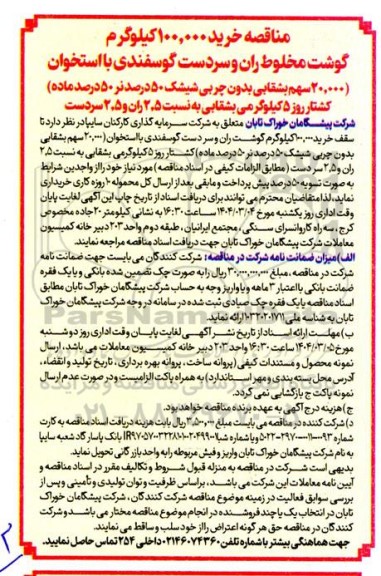 مناقصه خرید ۱۰۰,۰۰۰ کیلوگرم
گوشت مخلوط ران و سردست گوسفندی با استخوان
(۲۰,۰۰۰ سهم بشقابی بدون چربی شیشک ۵۰ درصد نر ۵۰ درصد ماده)
کشتار روز ۵ کیلوگرمی بشقابی به نسبت ۲,۵ ران و ۲,۵ سردست
شرکت پیشگامان خوراک تابان متعلق به شرکت سرمایه گذاری کارکنان سایپا در نظر دارد تا
سقف خرید ۱۰۰,۰۰۰ کیلوگرم گوشت ران و سر دست گوسفندی بااستخوان (۲۰,۰۰۰ سهم بشقابی
بدون چربی شیشک ۵۰ درصد نر ۵۰ درصد ماده) کشتار روز ۵ کیلوگرمی بشقابی به نسبت ۲,۵
ران و ۲,۵ سر دست (مطابق الزامات کیفی در اسناد مناقصه) مورد نیاز خود را از واجدین شرایط
به صورت تسویه ۵۰ درصد پیش پرداخت و مابقی بعد از ارسال کل محموله ۱۰ روزه کاری خریداری
نماید، لذا متقاضیان محترم می توانند برای دریافت اسناد از تاریخ چاپ این آگهی لغایت پایان
وقت اداری روز یکشنبه مورخ ۱۴۰۴/۰۳/۰۴ ساعت ۱۶:۳۰ به نشانی کیلومتر ۲۰ جاده مخصوص
کرج، سه راه کاروانسرای سنگی، مجتمع ایرانیان، طبقه دوم واحد ۲۰۳ دبیر خانه کمیسیون
معاملات شرکت پیشگامان خوراک تابان جهت دریافت اسناد مناقصه مراجعه نمایند.
الف) میزان ضمانت نامه شرکت در مناقصه: شرکت کنندگان می بایست جهت ضمانت نامه
شرکت در مناقصه، مبلغ ۳۰,۰۰۰,۰۰۰,۰۰۰ ریال را به صورت چک تضمین شده بانکی و یا یک فقره
ضمانت بانکی با اعتبار ۳ ماهه و یا واریز وجه به حساب شرکت پیشگامان خوراک تابان مطابق
اسناد مناقصه یا یک فقره چک صیادی ثبت شده در سامانه در وجه شرکت پیشگامان خوراک
تابان به شناسه ملی ارائه نماید.
ب) مهلت ارائه اسناد از تاریخ نشر آگهی لغایت پایان وقت اداری روز دو شنبه
مورخ ۱۴۰۴/۰۳/۰۵ ساعت ۱۶:۳۰ واحد ۲۰۳ دبیر خانه کمیسیون معاملات می باشد، ارسال
نمونه محصول و مستندات کیفی (پروانه ساخت، پروانه بهره برداری، تاریخ تولید و انقضاء،
آدرس محل بسته بندی و مهر استاندارد) به همراه پاکت الزامیست و در صورت عدم ارسال
نمونه پاکت ج بازگشایی نمی گردد.
ج) هزینه درج آگهی به عهده برنده مناقصه خواهد بود.
د) شرکت کننده در مناقصه می بایست مبلغ ریال بابت هزینه دریافت اسناد مناقصه به کارت
شماره و یا شماره شبا بانک پاسارگاد شعبه سایپا
به نام شرکت پیشگامان خوراک تابان واریز و فیش مربوطه را به واحد بازرگانی تحویل نماید.
بدیهی است شرکت در مناقصه به منزله قبول شروط و تکالیف مقرر در اسناد مناقصه و
آیین نامه معاملات این شرکت می باشد، بر اساس ظرفیت و توان تولیدی و تأمینی و پس از
بررسی سوابق فعالیت در زمینه موضوع مناقصه شرکت کنندگان، شرکت پیشگامان خوراک
تابان در انتخاب یک یا چند فروشنده در انجام موضوع مناقصه مختار می باشد و شرکت
کنندگان در مناقصه حق هر گونه اعتراض را از خود سلب و ساقط می نمایند.
جهت هماهنگی بیشتر با شماره تلفن ۰۲۱۴۶۰۷۴۳۶۰ داخلی ۲۵۴ تماس حاصل نمایید.